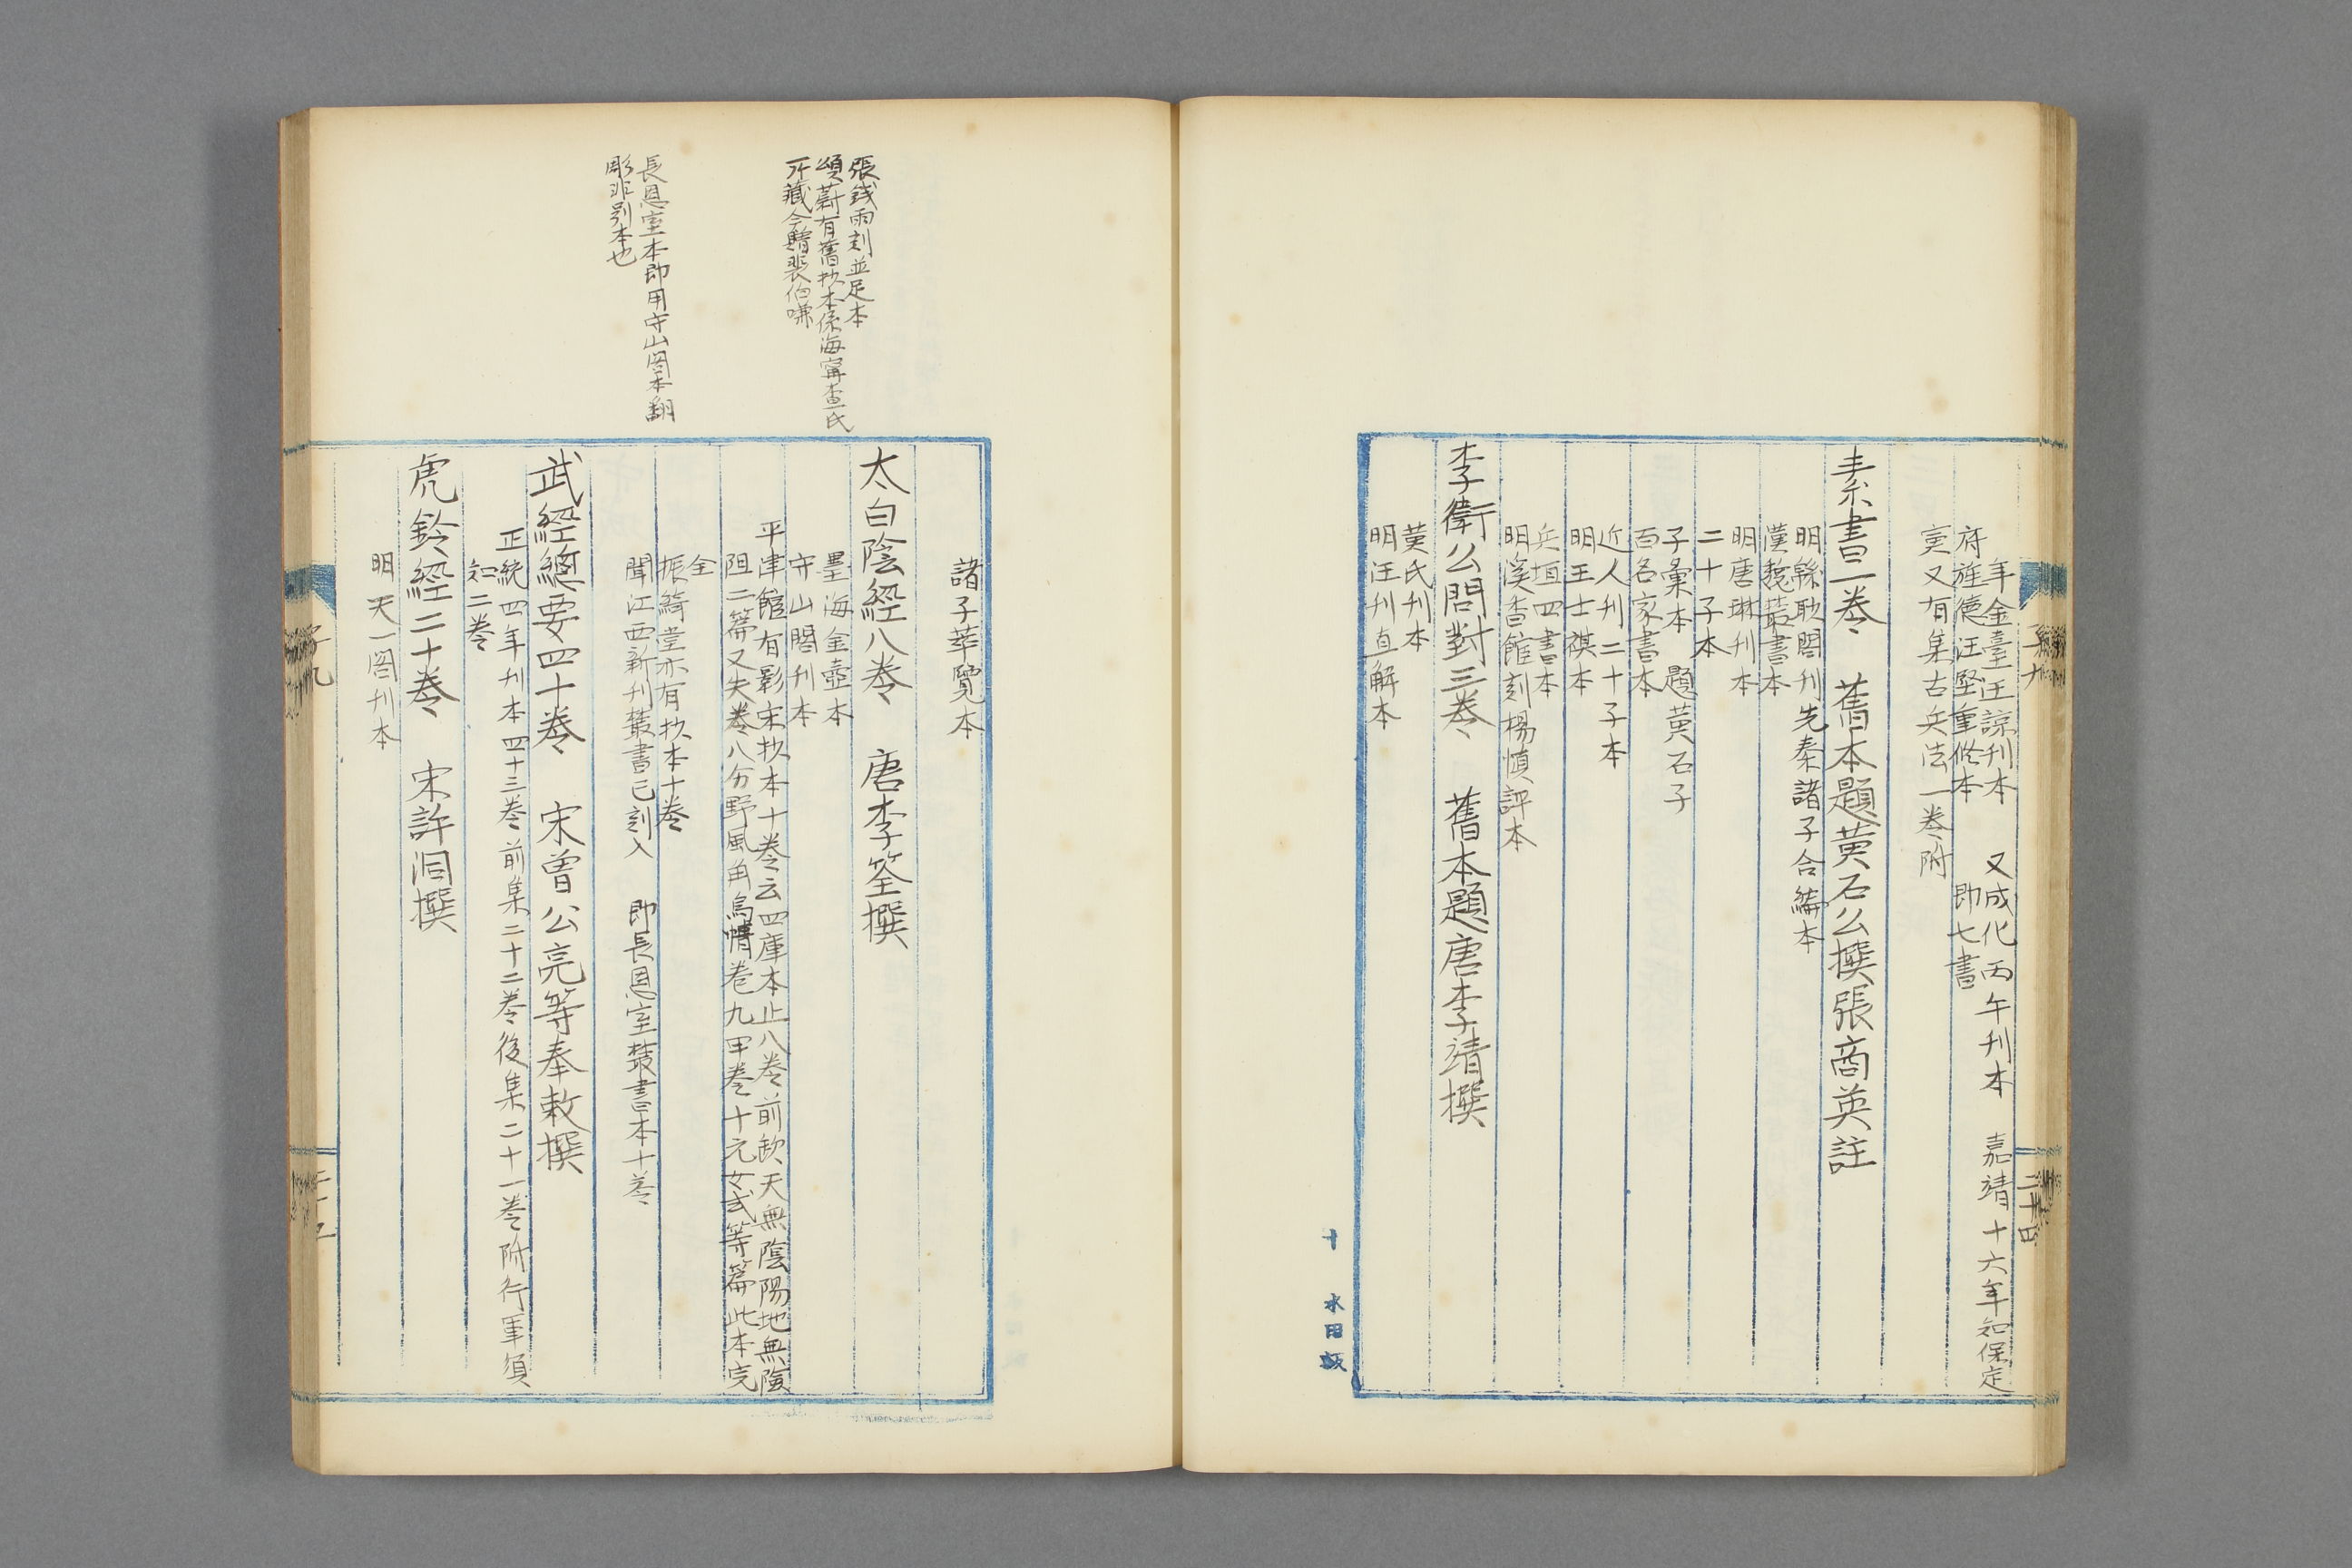 年金臺汪諒刊本　又成化丙午刊本　嘉靖十六年知保定
府旌德汪堅重修本　即七書
㐮又有集古兵法一卷附
素書一卷　舊本題黃石公撰張商英註
明緜眇閣刊先秦諸子合編本
漢魏叢書本
明唐琳刊本
二十子本
子彙本　題黃石子
百名家書本
近人刊二十子本
明王士禛本
兵垣四書本
明溪香館刻楊慎評本
李衛公問對三卷　舊本題唐李靖撰
黃氏刊本
明汪刊直解本
二十四
十　水田版
諸子萃覽本
太白陰經八卷　唐李筌撰
墨海金壺本
守山閣刊本
平津館有影宋抄本十卷云四庫本止八卷前缺天無陰陽地無險
阻二篇又失卷八分野風角鳥情卷九甲卷十元女式等篇此本完
全
振綺堂亦有抄本十卷
聞江西新刊叢書已刻入　即長恩室叢書本十卷
武經總要四十卷　宋曾公亮等奉敕撰
正統四年刊本四十三卷前集二十二卷後集二十一卷附行軍須
知二卷
虎鈐經二十卷　宋許洞撰
明天一閣刊本
張錢兩刻並足本
頌蔚有舊抄本係海甯查氏
所藏今贈裴伯謙
長恩室本即用守山閣本翻
彫非別本也
子九